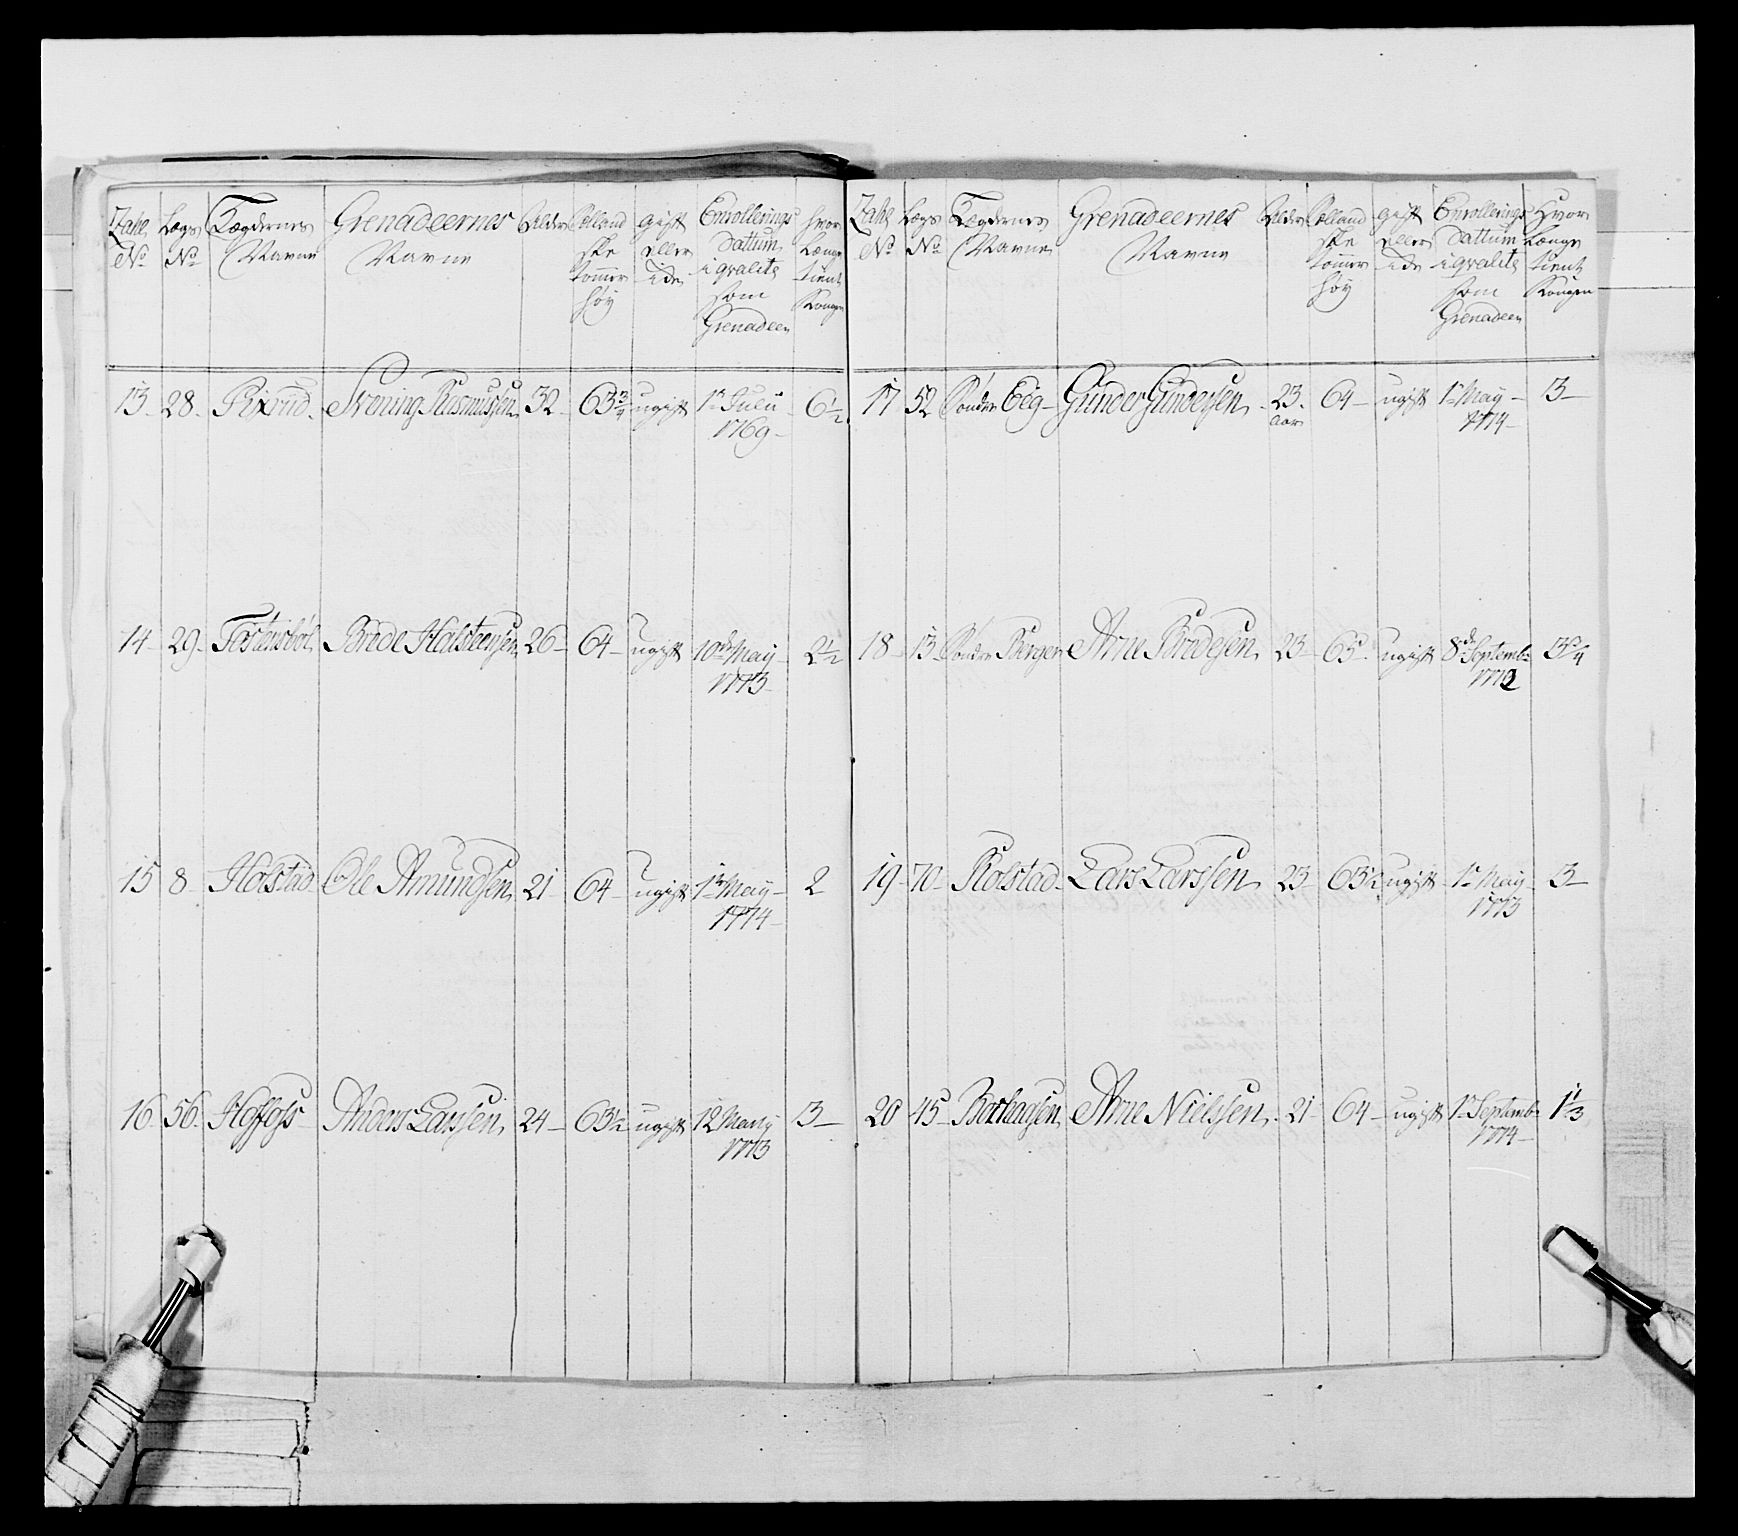 Zahl No | Lægs No | Lægdernes Navne | Grenadeernes Navne | Alder | Siælland ske tommer høy | gift eller ide | Enrollerings dattum i qvalite som Grenadeer | hvor Længe tient Kongen
13 | 28 | | Svening Rasmussen | 32 | 63 3/4 | ugift | 1te Julii 1769 | 6 1/2
14 | 29 | Tostensbøl | Brede Halsteensen | 26 | 64 | ugift | 10de May 1773 | 2 1/2
15 | 8 | Holstad | Ole Amundsen | 21 | 64 | ugift | 1te May 1774 | 2
16 | 56 | Hoffoss | Anders Larssen | 24 | 63 1/2 | ugift | 12 Marty 1773 | 3
Zahl No | Lægs No | Lægdernes Navne | Grenadeernes Navne | Alder | Siælland ske tommer høy | gift eller ide | Enrollerings dattum i qvalite som Grenadeer | Hvor Længe tient Kongen
17 | 52 | Sønder Eeg | Gunder Gundersen | 23 aar | 64 | ugift | 1te May | 3
18 | 13 | Sønder Bergen | Arne Bredesen | 23 | 65 | ugift | 8de Septemb: 1772 | 3 3/4
19 | 70 | Kolstad | Lars Larssen | 23 | 63 1/2 | ugift | 1te May 1773 | 3
20 | 45 | | Arne Nielssen | 21 | 64 | ugift | 1te Septemb: 1774 | 1 1/3